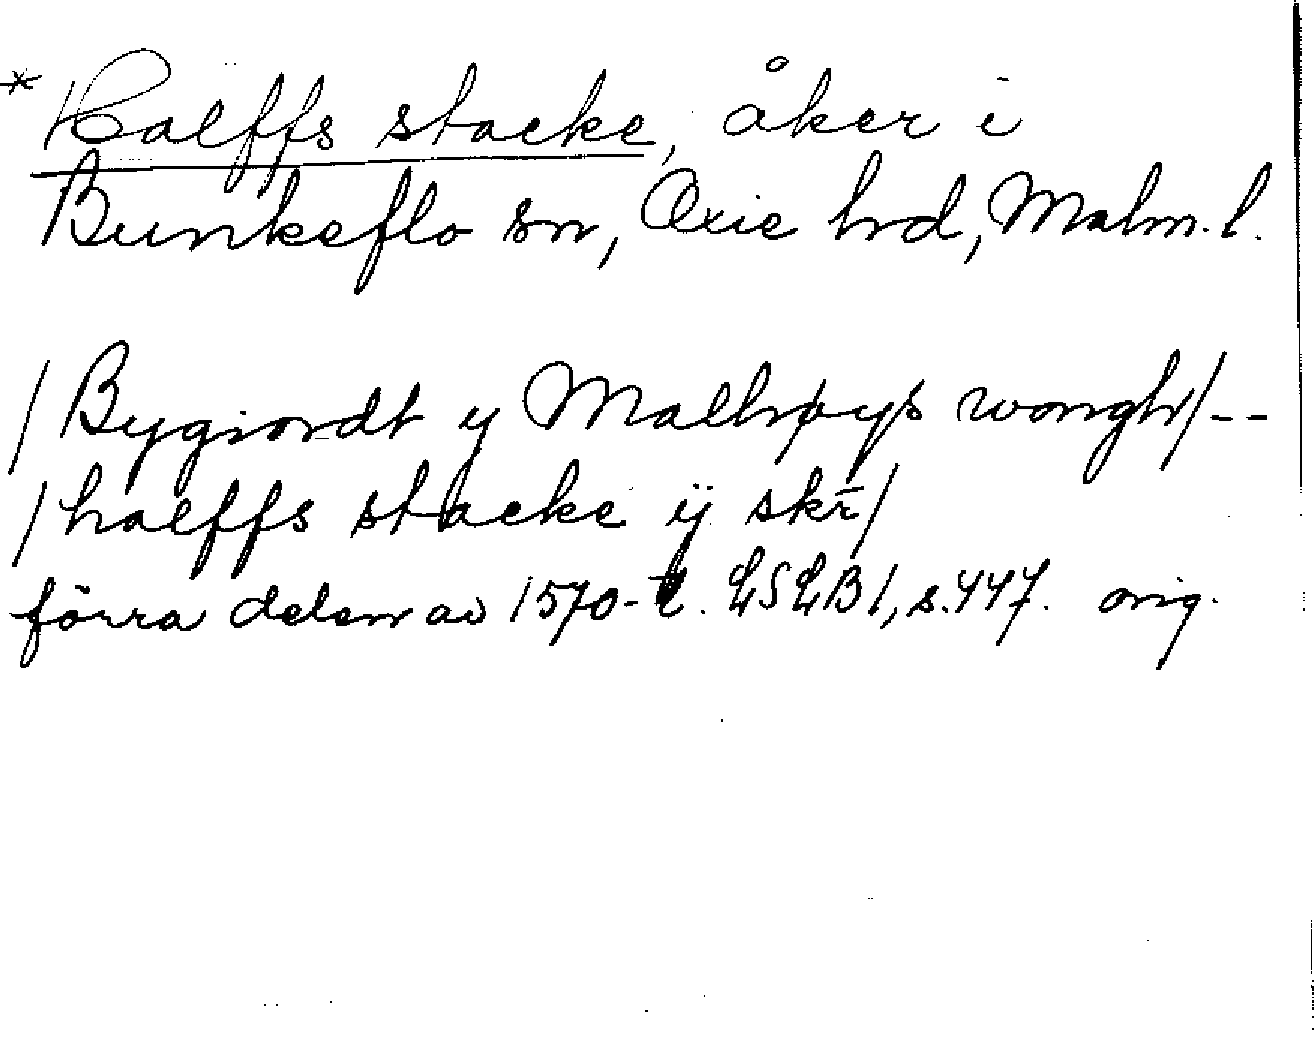 * Kalffs stacke, åker i
Bunkeflo sn, Oxie hrd, Malm. l.
/Bygiordt y Malhøys wongh/--
/kalffs stacke ÿ skr̄/
förra delen av 1570-t. LSLB1, s.447. orig.